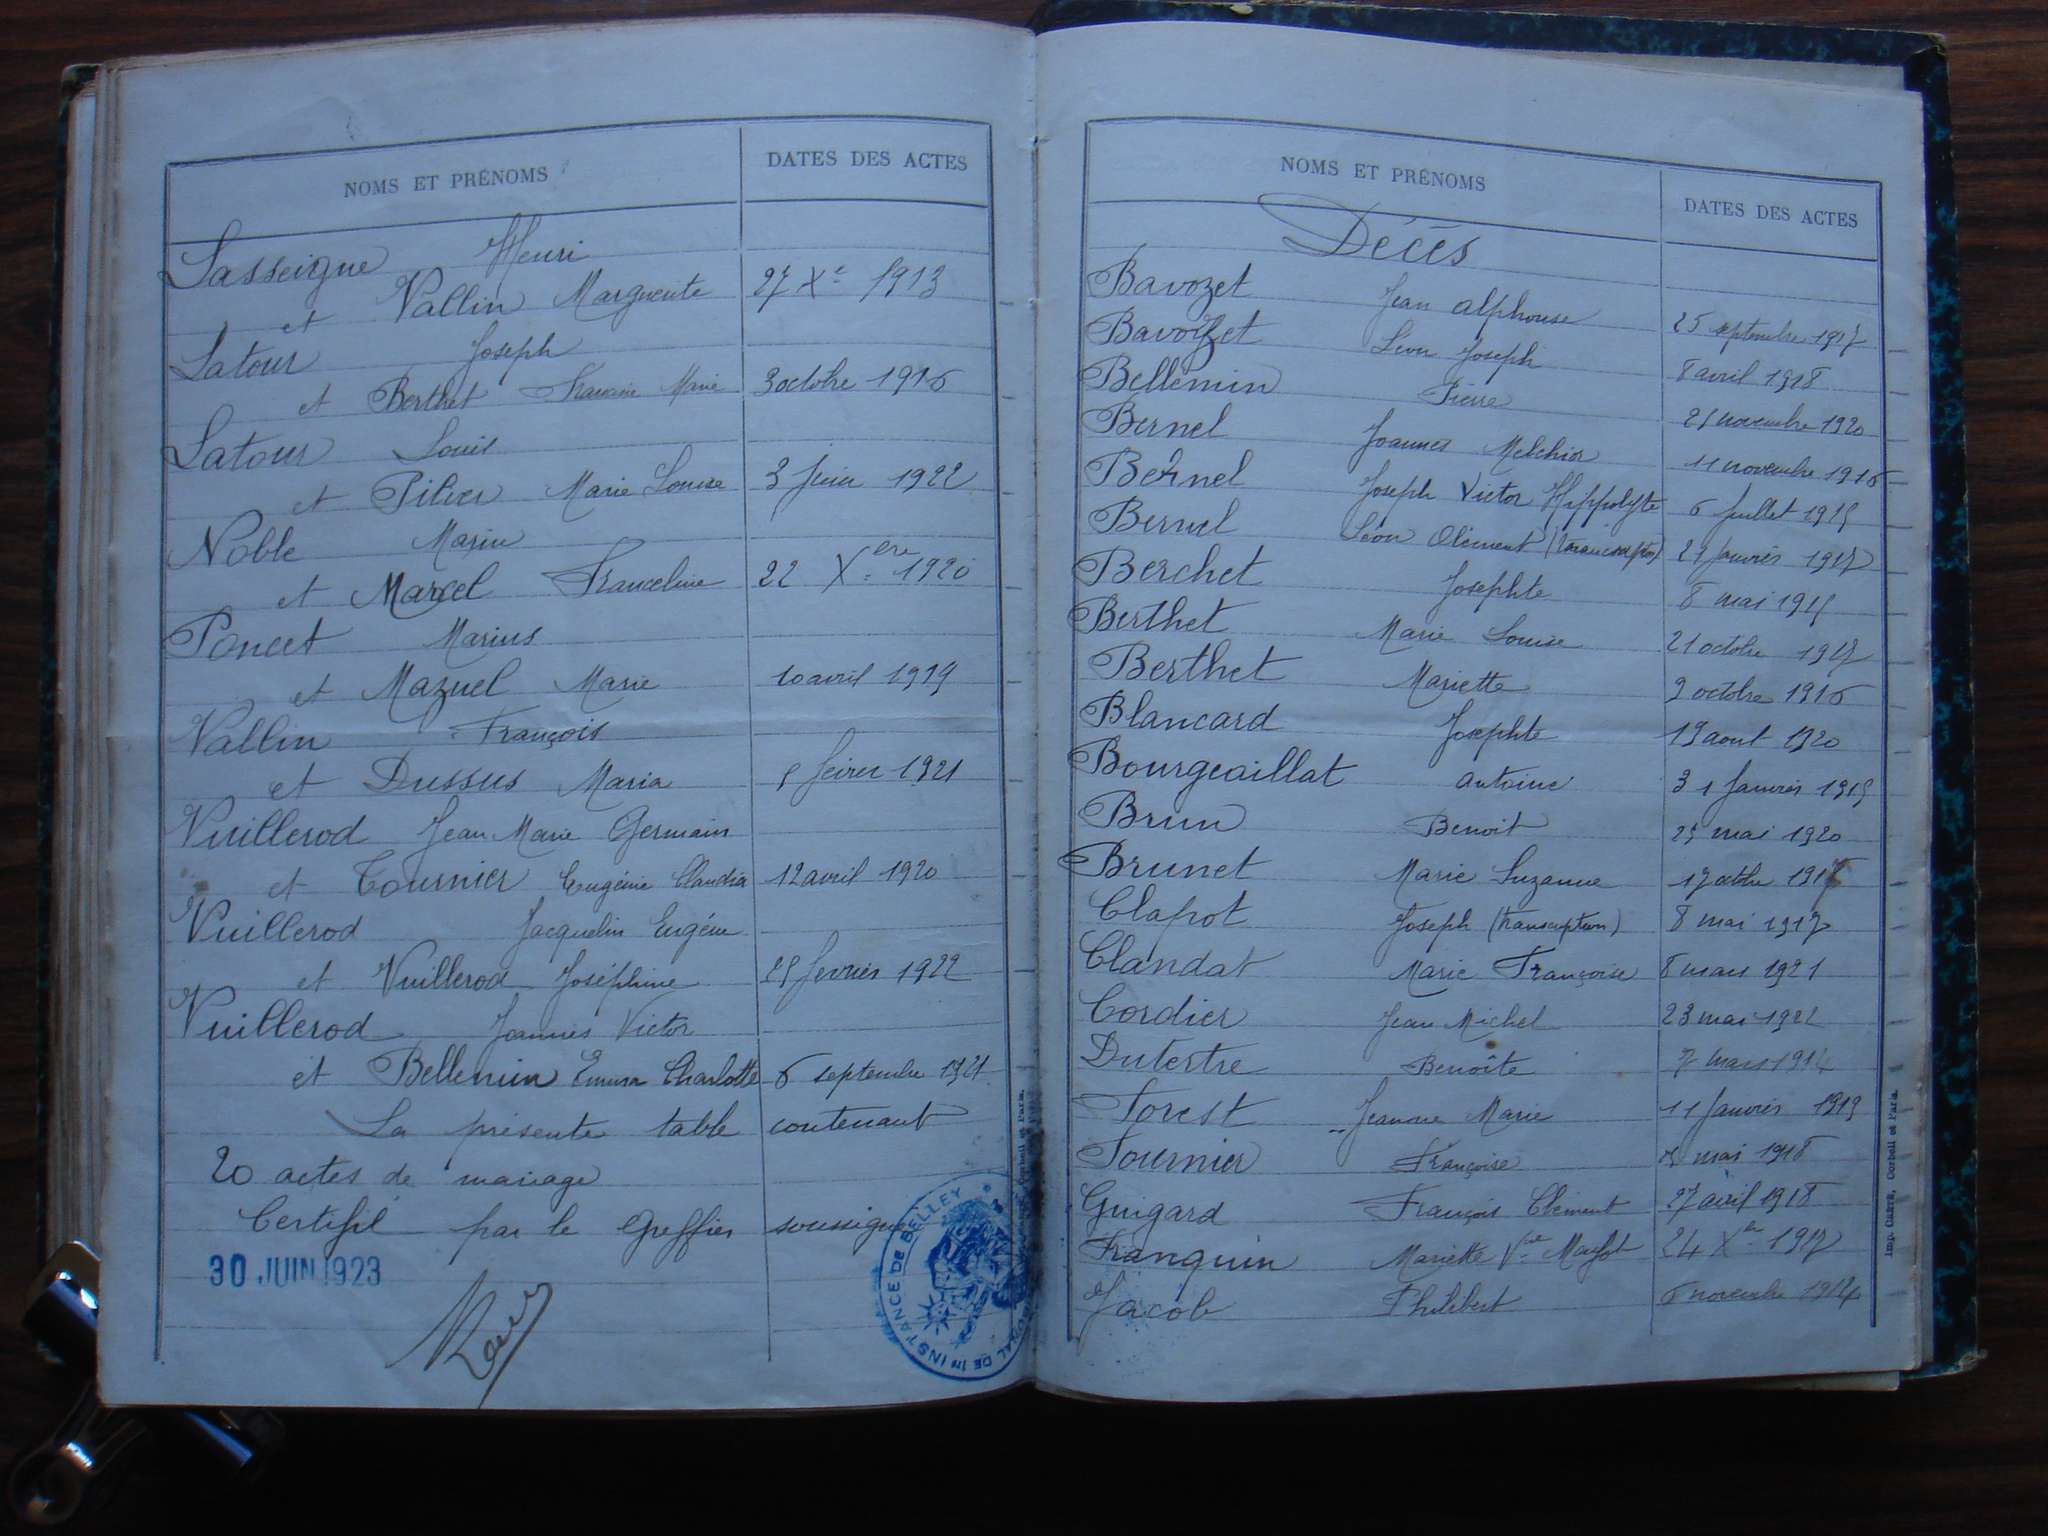 NOMS ET PRÉNOMS DATES DES ACTES
Lasseigne Henri
et Vallin Marguerite 27 Xe 1913
Latour Joseph
et Berthet Francine Marie 3 octobre 1916
Latour Louis
et Pilier Marie Louise 3 1922
Noble Marin
et Marcel Franceline 22 Xere 1920
Poncet Marius
et Mazuel Marie 10 avril 1919
Vallin François
et Dussus Maria 1921
Vuillerod Jean Marie Germain
et Tournier Eugénie Claudia 12 avril 1920
Vuillerod Jacquelin Eugène
et Vuillerod Joséphine février 1922
Vuillerod Joannès Victor
et Bellemin Emma Charlotte 6 septembre 1921
La présente table contenant
20 actes de mariage
Certifié par le Greffier soussigné
30 JUIN 1923
INSTANCE DE BELLEY
Imp. CARTE, Corbeil et Paris.
NOMS ET PRÉNOMS DATES DES ACTES
Décès
Bavozet Jean Alphonse 25 septembre 1917
Bavozet Léon Joseph 8 avril 1918
Bellemin Pierre novembre 1920
Bernel Joannes Melchior 11 novembre 1916
Bernel Joseph Victor Hippolyte 6 Juillet 1915
Bernel Léon Clément (transcription) Janvier 1917
Berchet Josephte 8 mai 1915
Berthet Marie Louise 21 octobre 1917
Berthet Mariette 9 octobre 1916
Blancard Josephte 19 aout 1920
Bourgeaillat Antoine 31 Janvier 1915
Brun Benoit 25 mai 1920
Brunet Marie Suzanne octobre
Clapot Joseph (transcription) 8 mai 1917
Clandat Marie Françoise 8 mars 1921
Cordier Jean Michel 23 mai 1922
Dutertre Benoîte 7 mars 1914
Forest Jeanne Marie 11 Janvier 1919
Fournier Françoise mai 1918
Guigard François Clément 27 avril 1918
Franquin Mariette Vve 24 Xbre 1917
Jacob Philibert 6 novembre 1914
Imp. CARTE, Corbeil et Paris.